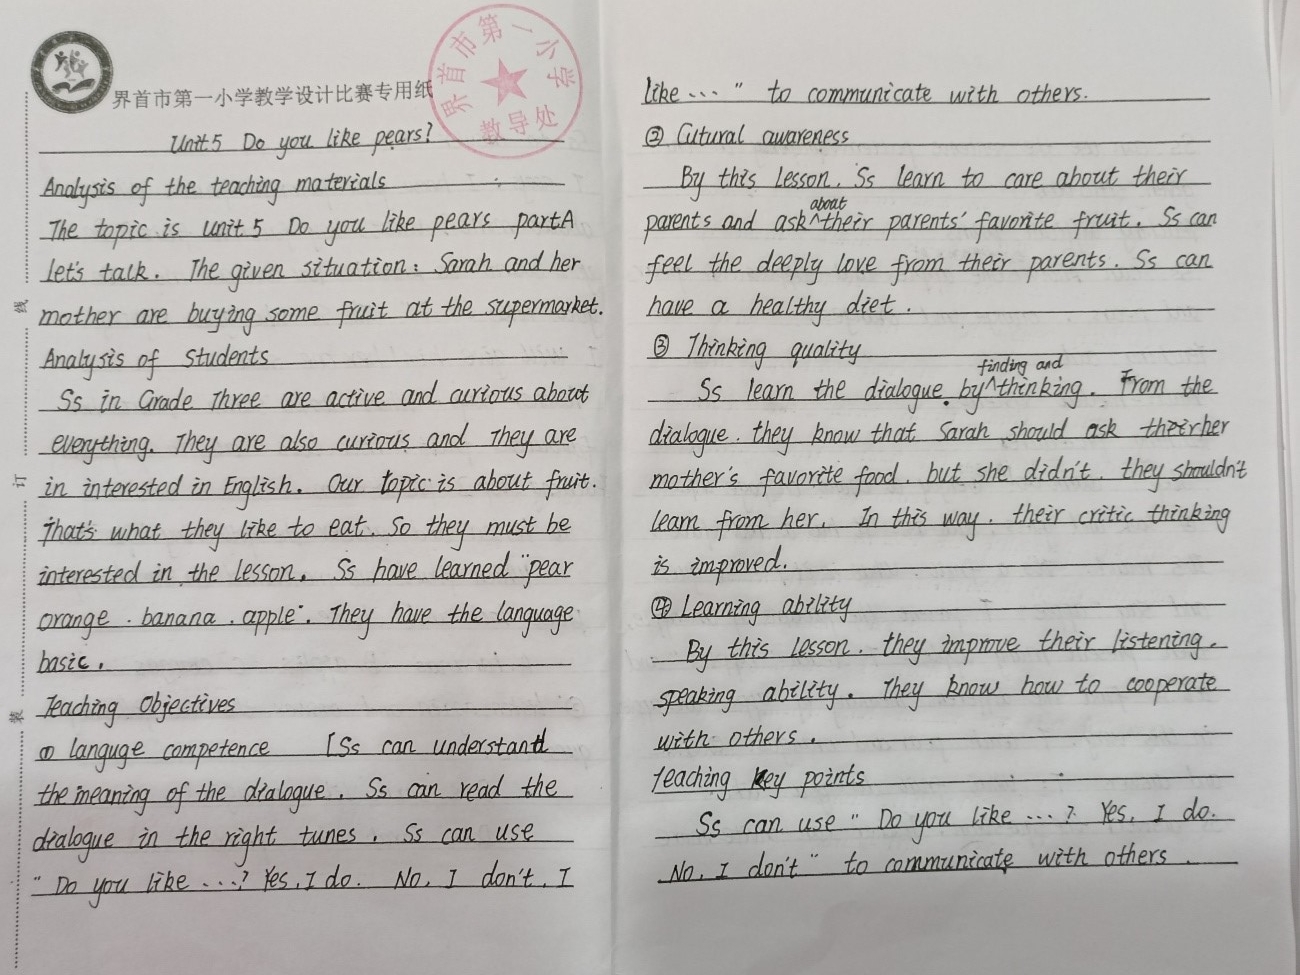 界首市第一小学教学设计比赛专用纸
界首市第一小学
教导处
Unit 5 Do you like pears?
Analysis of the teaching materials
The topic is unit 5 Do you like pears partA
let's talk. The given situation: Sarah and her
mother are buying some fruit at the supermarket.
Analysis of students
Ss in Grade Three are active and curious about
everything. They are also curious and They are
in interested in English. Our topic is about fruit.
That's what they like to eat. So they must be
interested in the lesson. Ss have learned "pear
orange. banana. apple". They have the language
basic.
Teaching Objectives
① languge competence [Ss can understand
the meaning of the dialogue. Ss can read the
dialogue in the right tunes. Ss can use
"Do you like ...? Yes, I do. No, I don't. I
线
订
装
like ..." to communicate with others.
② Cutural awareness
By this lesson. Ss learn to care about their
parents and ask ^about their parents' favorite fruit. Ss can
feel the deeply love from their parents. Ss can
have a healthy diet.
③ Thinking quality
Ss learn the dialogue by ^finding and thinking. From the
dialogue. they know that Sarah should ask their her
mother's favorite food. but she didn't. they shouldn't
learn from her. In this way. their critic thinking
is improved.
④ Learning ability
By this lesson. they improve their listening.
speaking ability. They know how to cooperate
with others.
teaching key points
Ss can use "Do you like ...? Yes, I do.
No, I don't" to communicate with others.